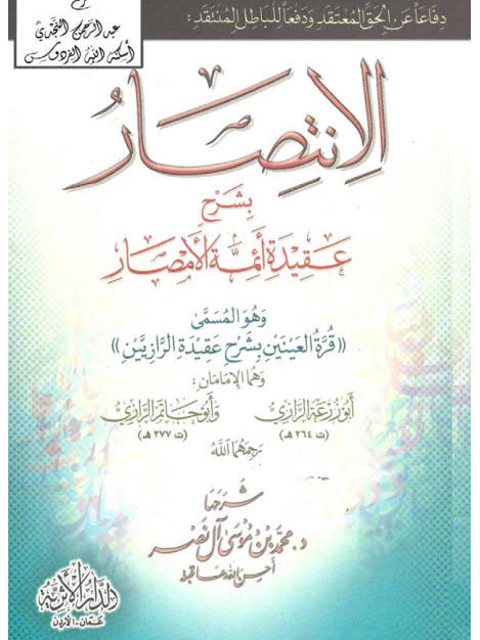 دِفَاعَاً عَنِ الحَقِّ المُعْتَقَدِ وَدَفْعَاً لِلبَاطِلِ المُنْتَقَدِ:
عبد الرحمن النجدي
أسكنه الله الفردوس
الإنْتِصَارُ
بِشَرْحِ
عَقِيْدَةِ أَئِمَّةِ الأَمْصَارِ
وَهُوَ المُسَمَّى
((قُرَّةُ العَيْنَيْنِ بِشَرْحِ عَقِيْدَةِ الرَّازِيَّيْنِ))
وَهُمَا الإِمَامَانِ:
أَبُو زُرْعَةَ الرَّازِيُّ وَأَبُو حَاتِمٍ الرَّازِيُّ
(ت ٢٦٤ هـ) (ت ٢٧٧ هـ)
رَحِمَهُمَا اللهُ
شَرَحَهَا
د. مُحَمَّد بْنُ مُوسَى آل نَصْر
أحسن الله عاقبته
الدَّارُ الأَثَرِيَّة
عَمَّان - الأُردُن